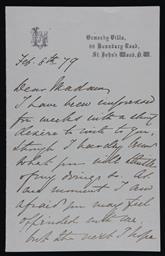 Ormesby Villa,
88 Boundary Road,
St. John's Wood, N.W.
Feb. 5th 79
Dear Madam,
I have been impressed
for weeks with a strong
desire to write to you,
though I hardly know
what you will think
of my doing so. At
one moment I am
afraid you may feel
offended with me,
but the next I hope